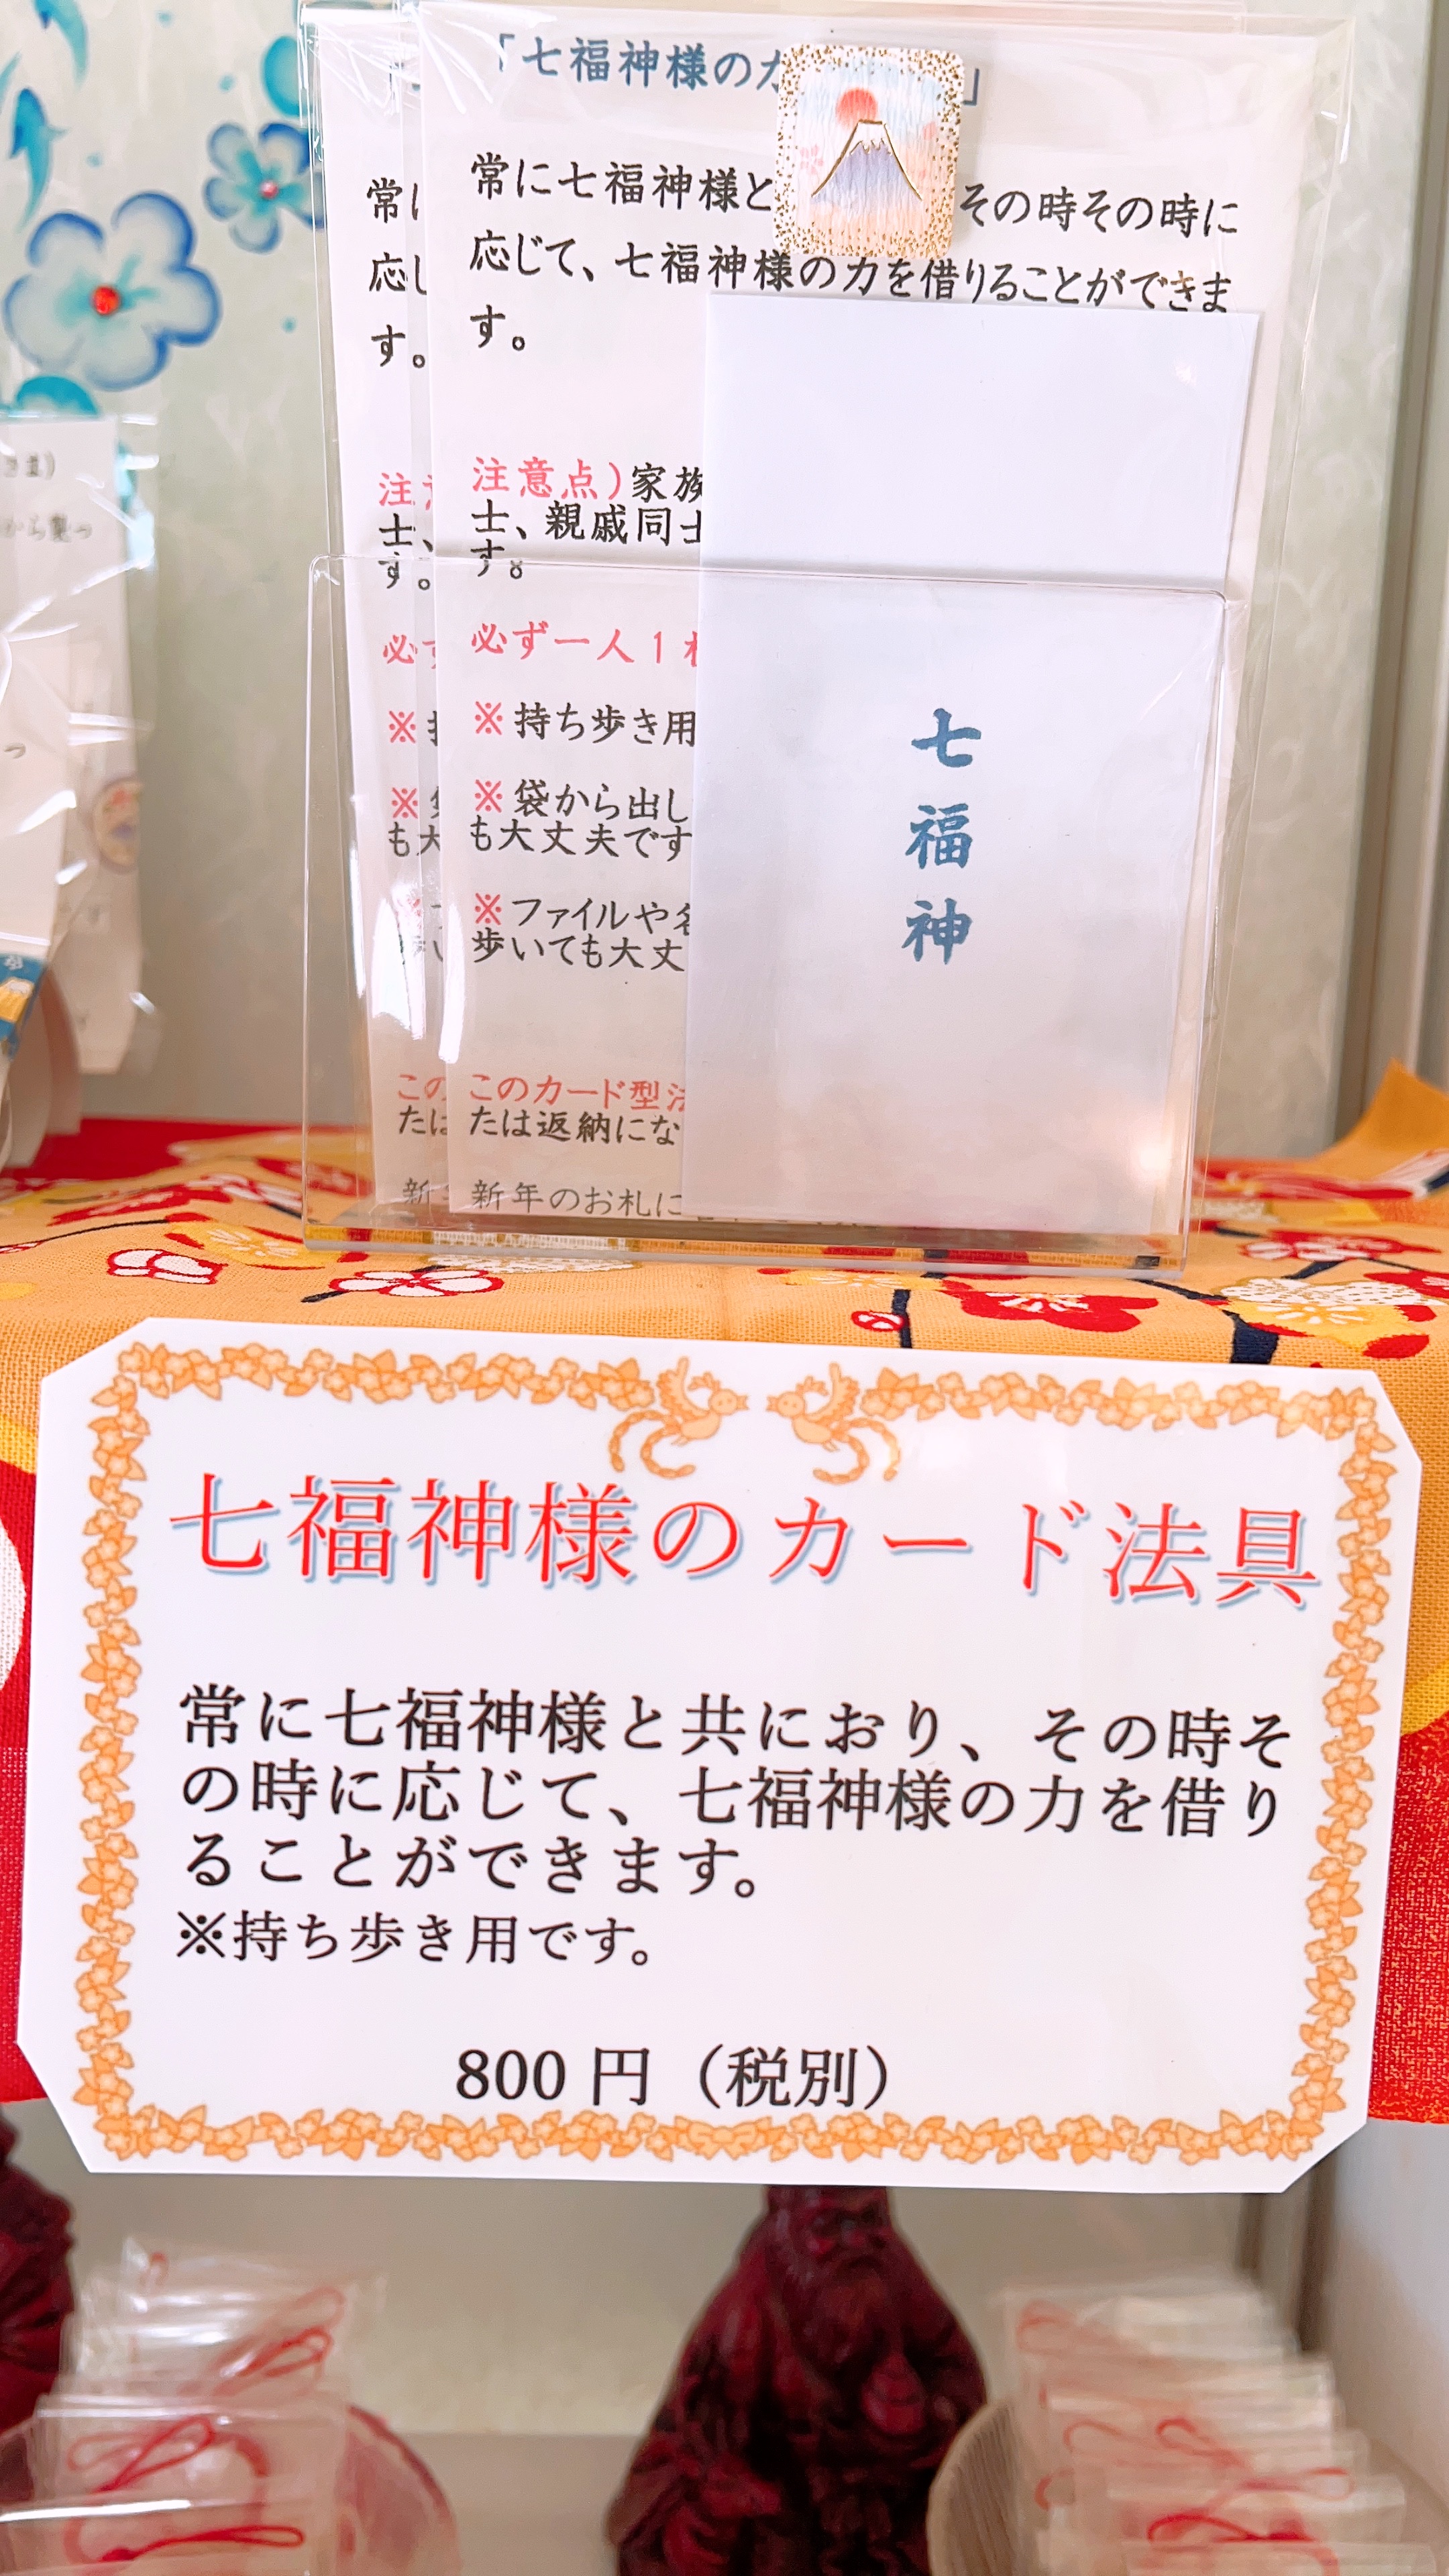 「七福神様の
常に七福神様と
その時その時に
応じて、七福神様の力を借りることができま
す。
注意点)家族
士、親戚同士
す。
必ず一人1
※持ち歩き用
※袋から出し
も大丈夫です
※ファイルや
歩いても大丈
このカード型法
たは返納にな
新年のお札に
七福神
七福神様のカード法具
常に七福神様と共におり、その時そ
の時に応じて、七福神様の力を借り
ることができます。
※持ち歩き用です。
800円(税別)